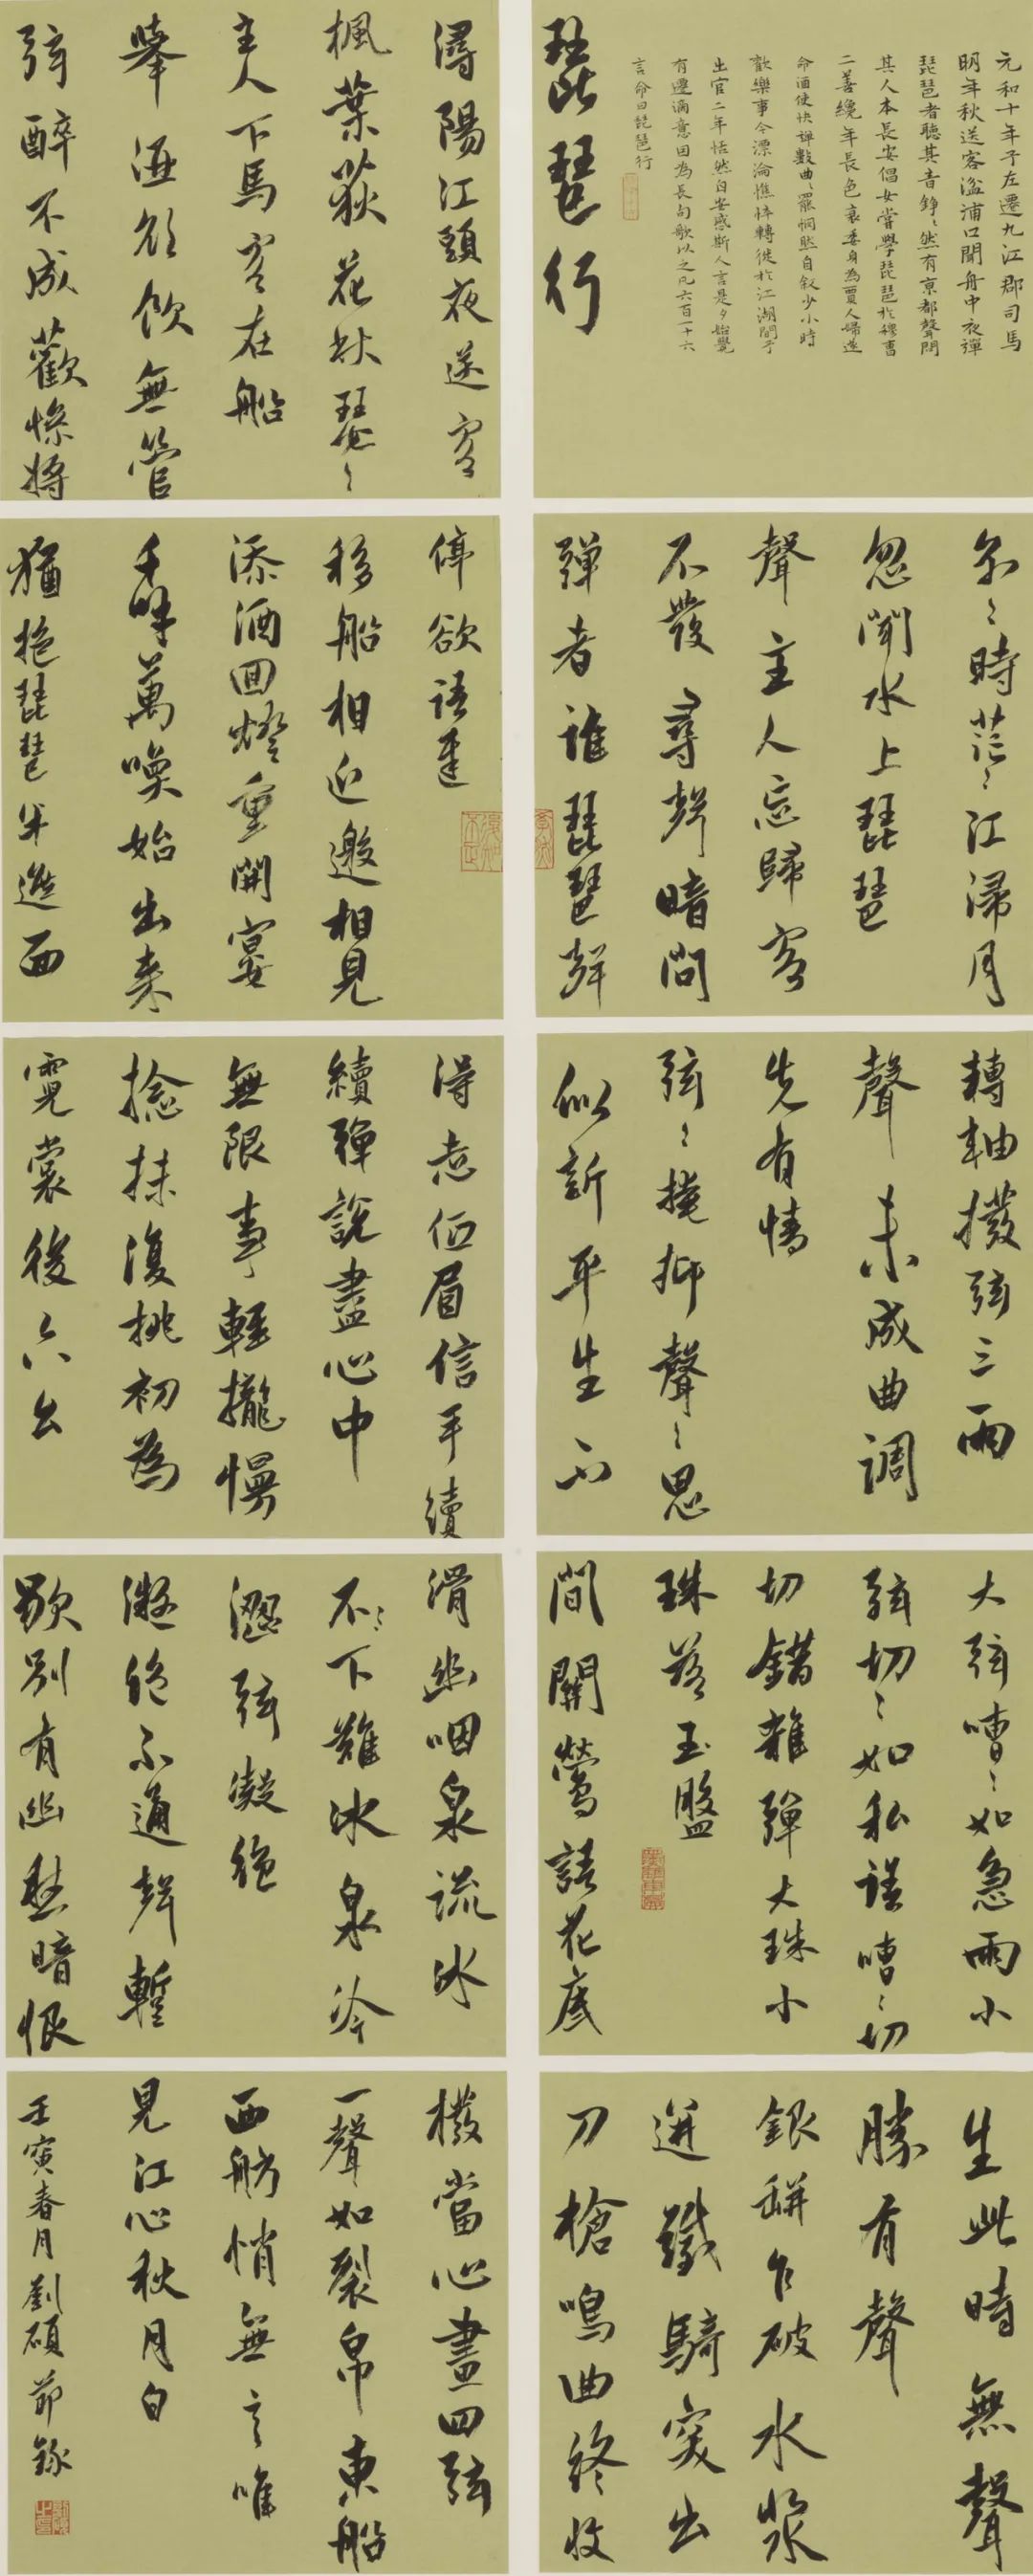 元和十年予左遷九江郡司馬
明年秋送客湓浦口聞舟中夜彈
琵琶者聽其音錚〻然有京都聲問
其人本長安倡女嘗學琵琶於穆曹
二善纔年長色衰委身為賈人婦遂
命酒使快彈數曲〻罷憫默自敘少小時
歡樂事今漂淪憔悴轉徙於江湖間予
出官二年恬然自安感斯人言是夕始覺
有遷謫意因為長句歌以之凡六百一十六
言命曰琵琶行
琵琶行
潯陽江頭夜送客
楓葉荻花秋瑟〻
主人下馬客在船
舉酒欲飲無管
弦醉不成歡慘將
別〻時茫〻江浸月
忽聞水上琵琶
聲主人忘歸客
不發尋聲暗問
彈者誰琵琶聲
停欲語遲
移船相近邀相見
添酒回燈重開宴
千呼萬喚始出來
猶抱琵琶半遮面
轉軸撥弦三兩
聲未成曲調
先有情
弦〻掩抑聲〻思
似訴平生不
得志低眉信手續
續彈說盡心中
無限事輕攏慢
撚抹復挑初為
霓裳後六么
大弦嘈〻如急雨小
弦切〻如私語嘈〻切
切錯雜彈大珠小
珠落玉盤
間關鶯語花底
滑幽咽泉流冰
不〻下難冰泉冷
澀弦凝絕
凝絕不通聲暫
歇別有幽愁暗恨
生此時無聲
勝有聲
銀瓶乍破水漿
迸鐵騎突出
刀槍鳴曲終收
撥當心畫四弦
一聲如裂帛東船
西舫悄無言唯
見江心秋月白
壬寅春月劉碩節錄